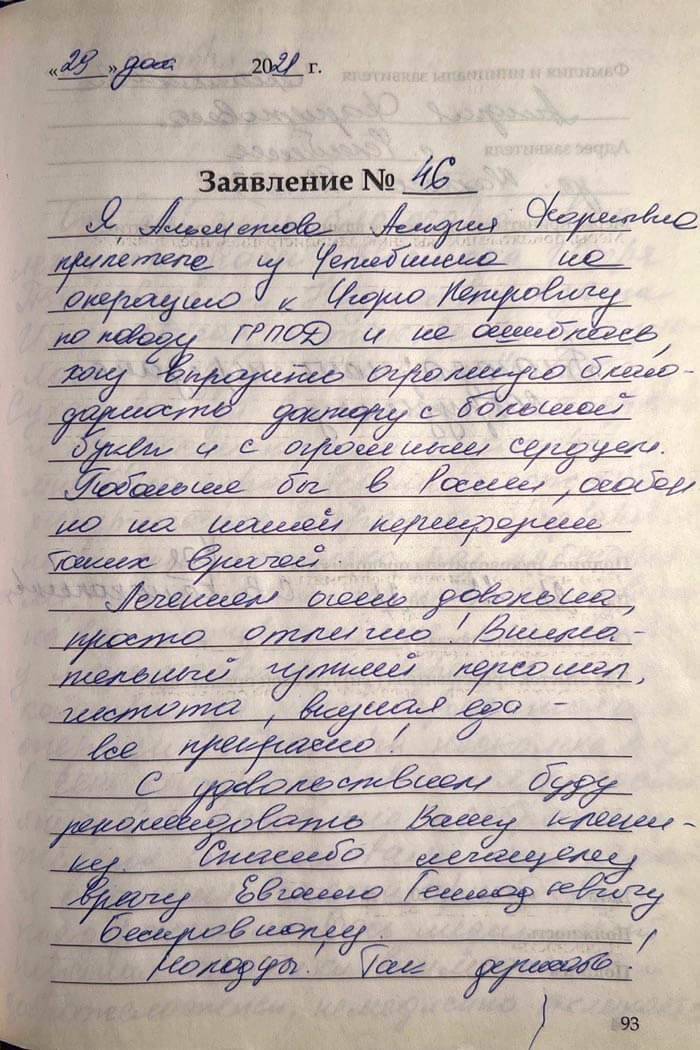 «29» дек 2021 г.
Заявление № 46
Я Альметова Альфия Харисовна
прилетела из Челябинска на
операцию к Игорю Петровичу
по поводу ГРПОД и не ошиблась,
хочу выразить огромную благо-
дарность доктору с большой
буквы и с огромным сердцем.
Побольше бы в России, особен
но на нашей периферии
таких врачей
Лечением очень довольна,
просто отлично! Внима-
тельный чуткий персонал,
чистота, вкусная еда –
все прекрасно!
С удовольствием буду
рекомендовать Вашу клини-
ку. Спасибо лечащему
врачу Евгению Геннадьевичу
Молодцы! Так держать!
93